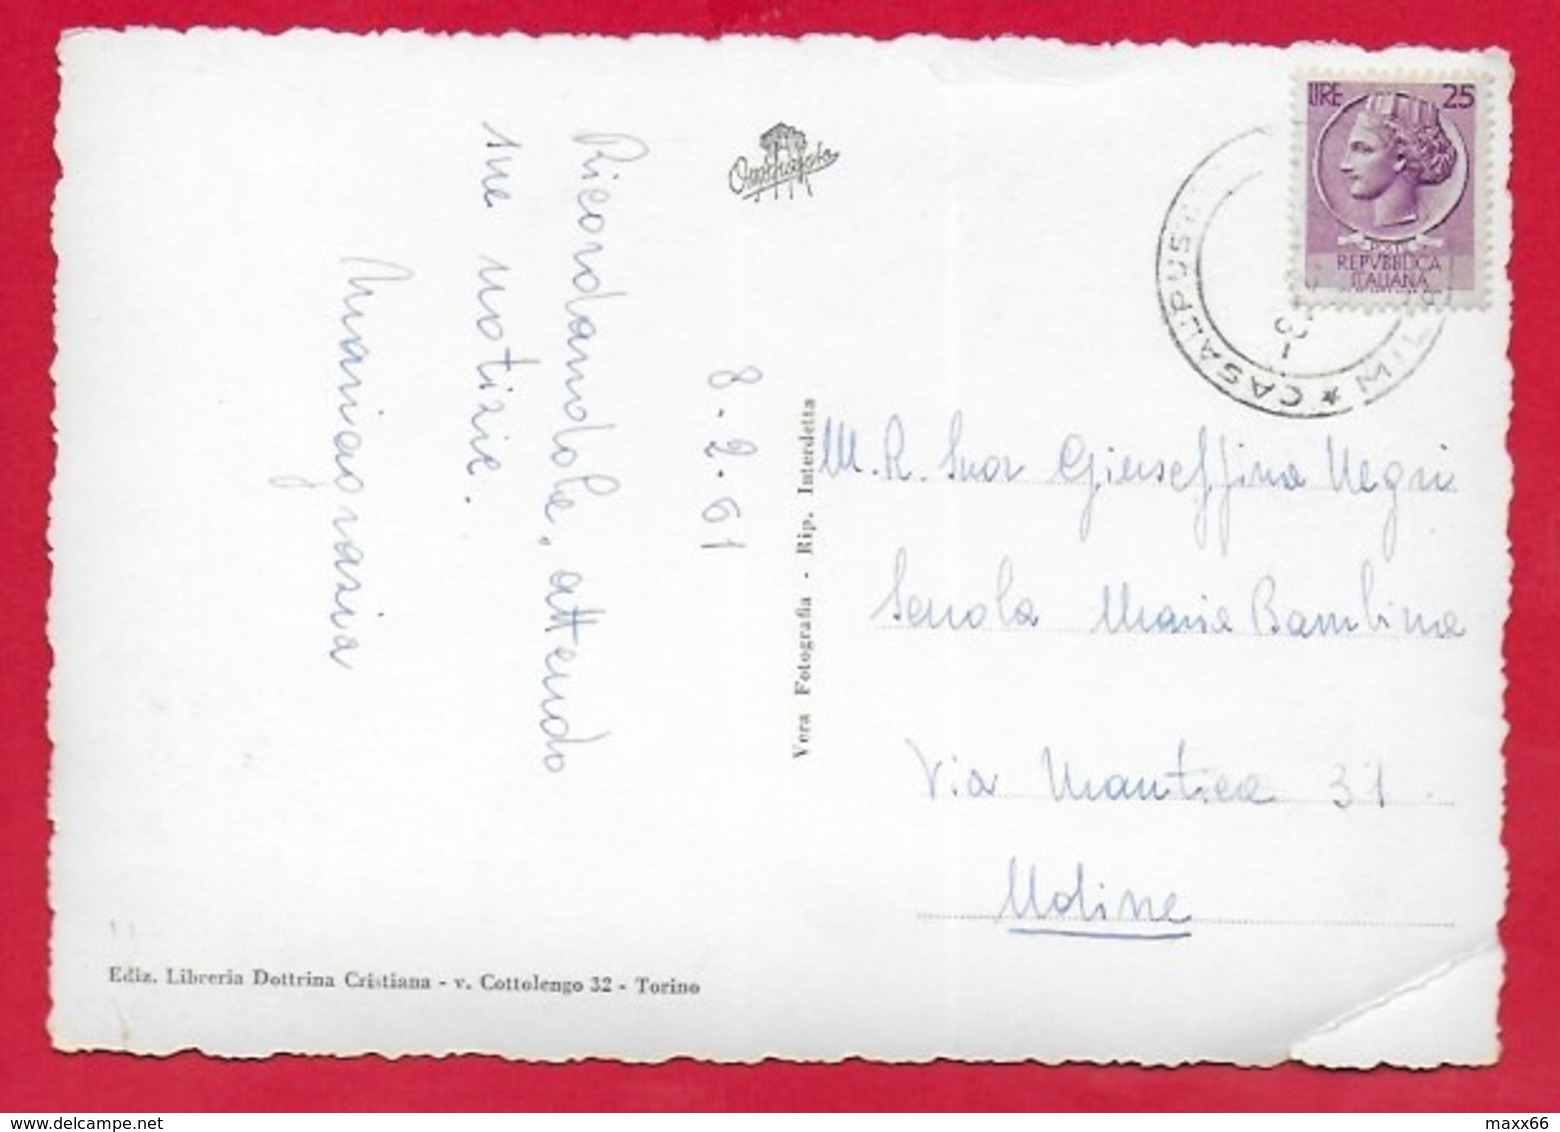 Ricordandole, attendo
sue notizie.
Mariagrazia
8.2.61
Vera Fotografia - Rip. Interdetta
LIRE 25
POSTE
REPVBBLICA
ITALIANA
CASALPUST
MIL
M. R. Suor Giuseffina Negri
Scuola Maria Bambina
Via Mantica 31
Udine
Ediz. Libreria Dottrina Cristiana - v. Cottolengo 32 - Torino
maxx66